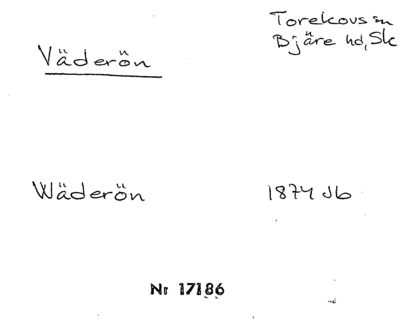 Torekovs sn
Bjäre hd, Sk
Väderön
Wäderön 1874 Jb
Nr 17186